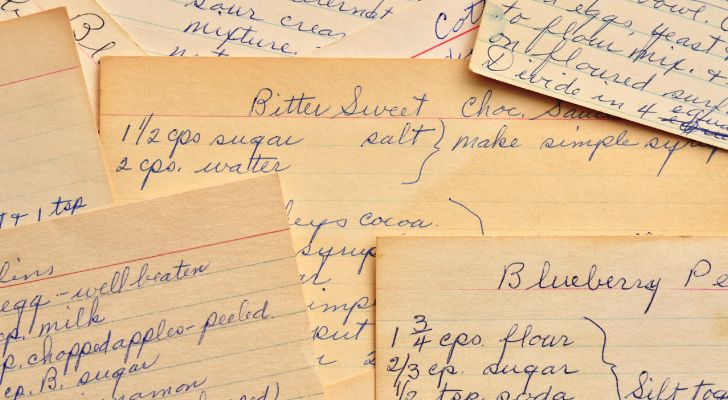 sour cream
mixture.
Bl
Cot
bowl. C
eggs yeast m
to flour mix. &
on floured sur
Divide in 4 equa
Bitter Sweet Choc. Sauc
1 1/2 cps sugar salt } make simple syrup
2 cps. watter
eys cocoa.
syrup
& 1 tsp
lins
egg - well beaten
cp. milk
p. chopped apples - peeled.
cp. B. sugar
nnamon
Blueberry Pe
1 3/4 cps. flour
2/3 cp. sugar
1/2 tsp. soda
Sift tog